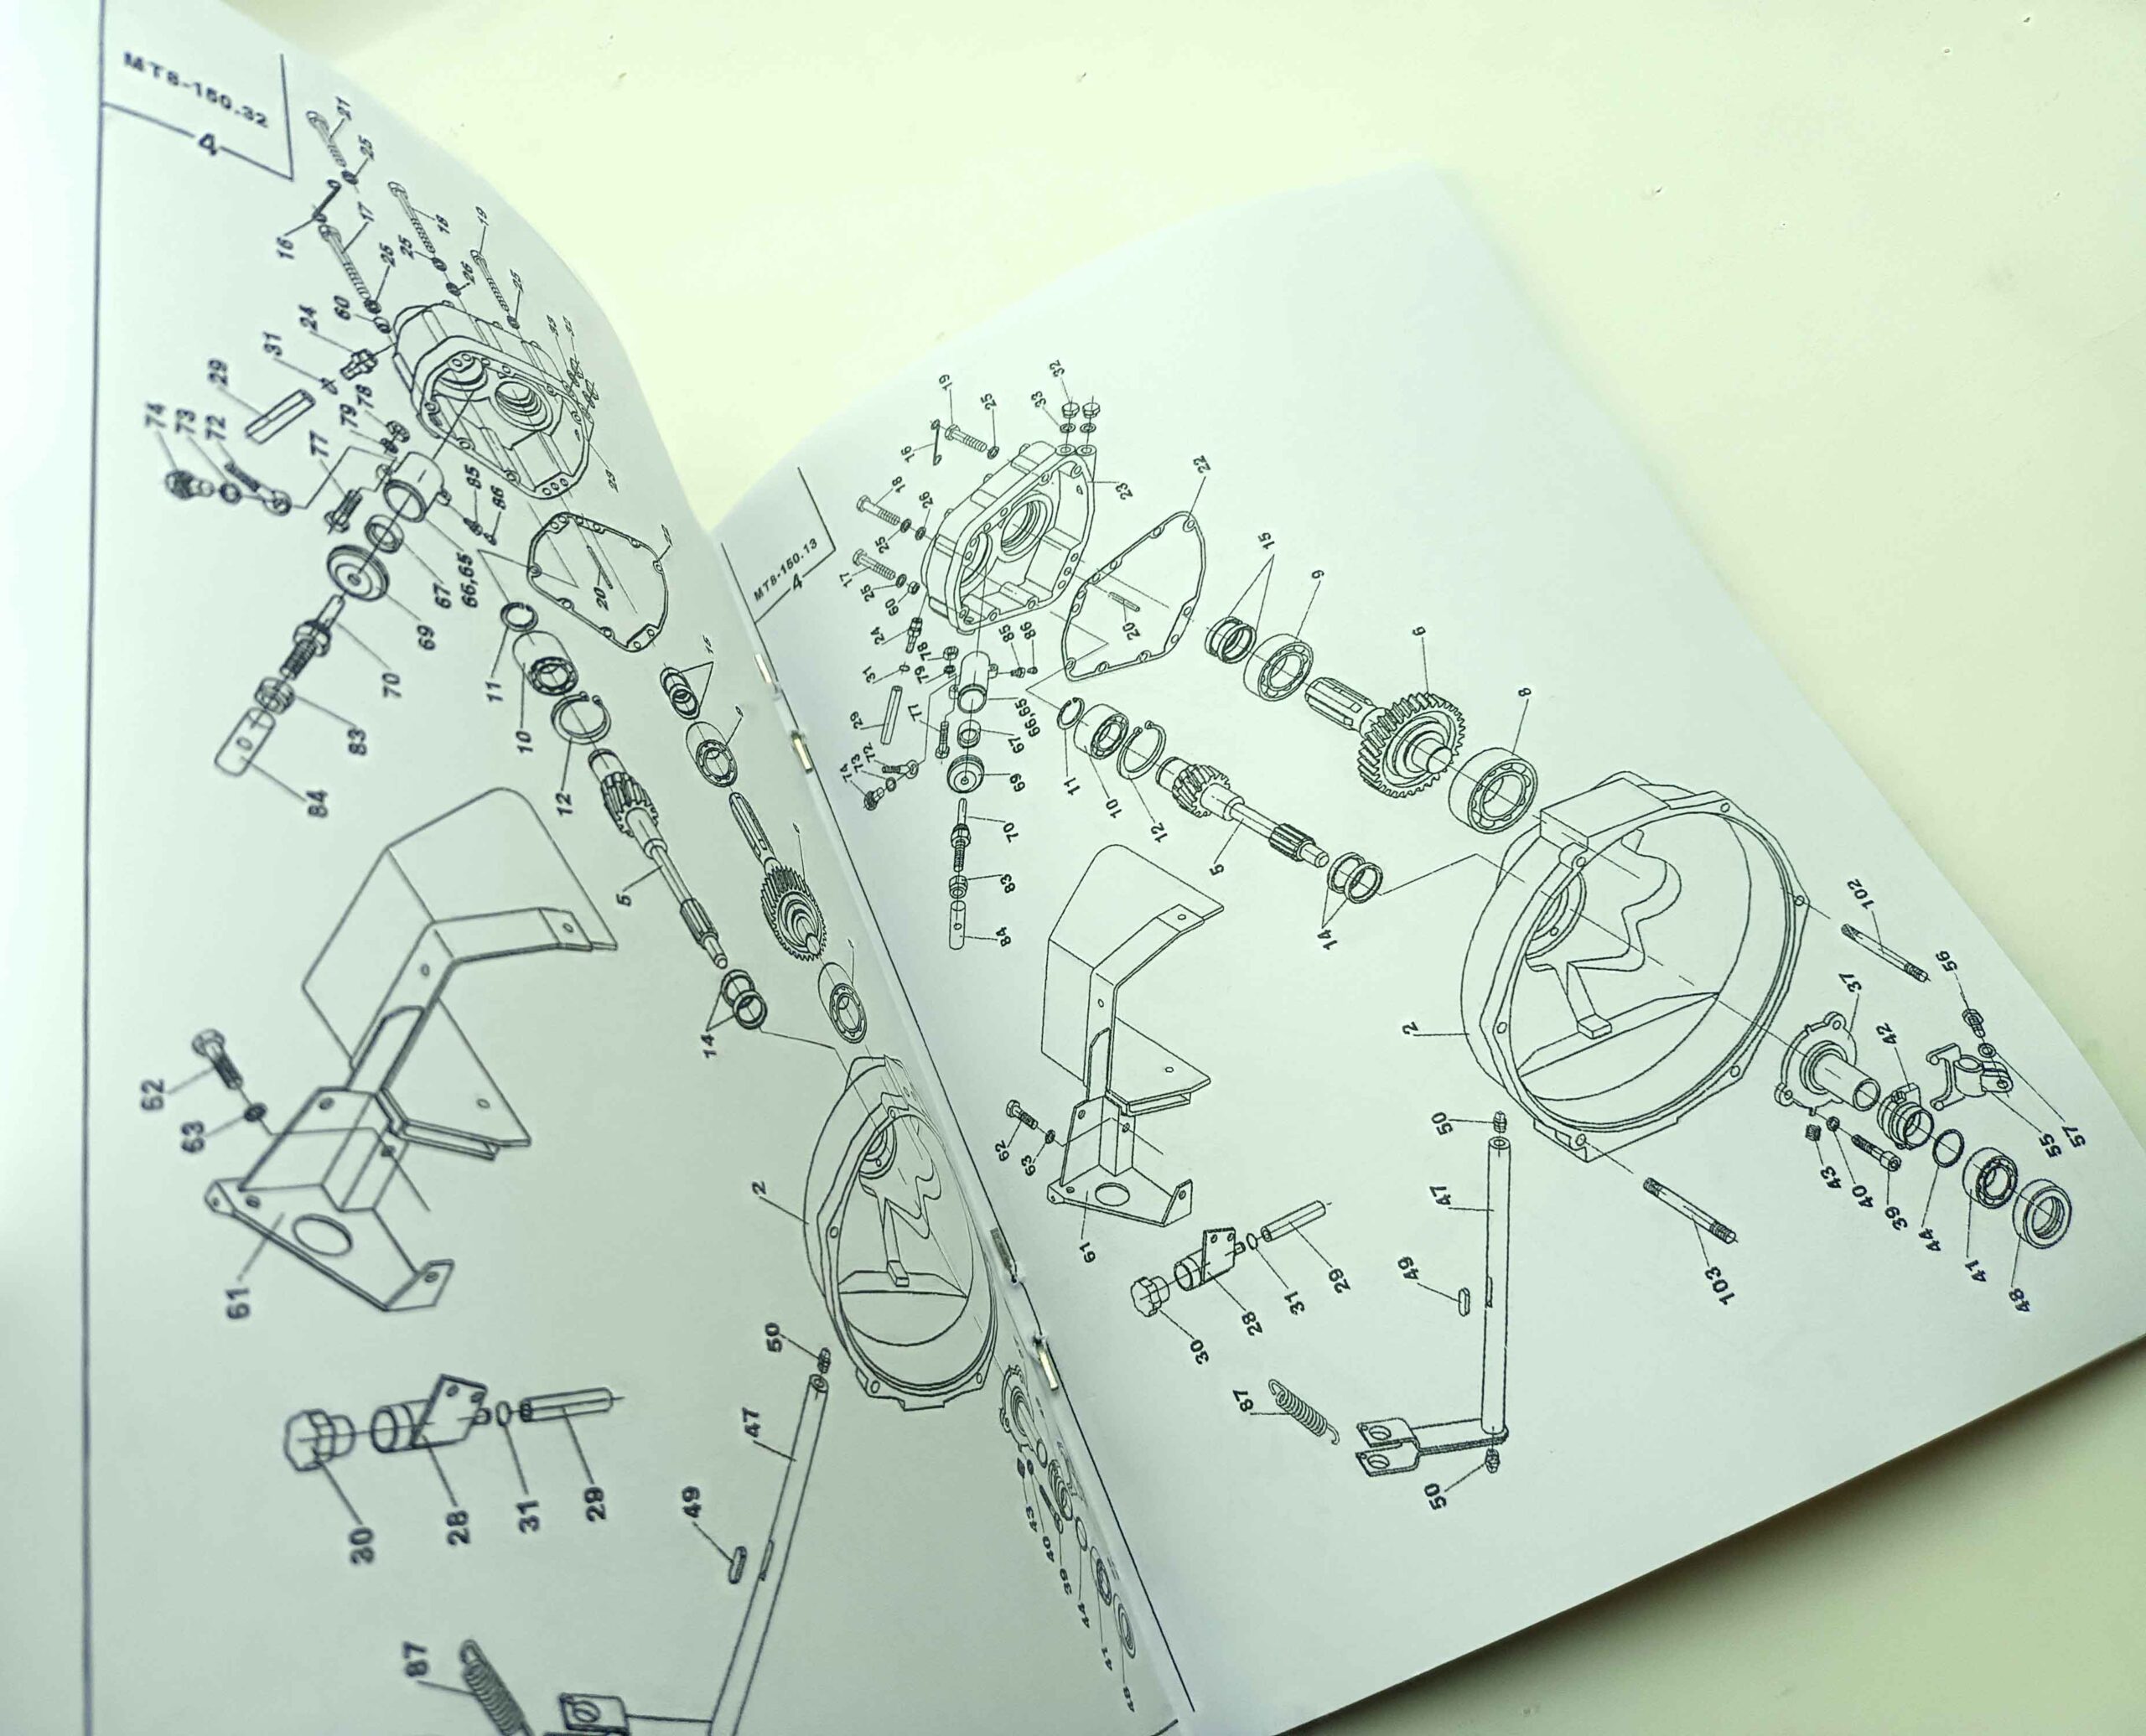 MT8-150.32
4
21
25
16
17
18
19
25
25
26
25
60
24
31
29
74
73
72
79
78
77
85
86
67
66,65
69
70
83
84
20
11
10
12
5
14
62
63
61
2
50
47
49
30
28
31
29
87
43
40
39
44
41
48
MT8-150.13
4
19
25
33
32
16
18
26
25
23
22
17
25
60
24
20
15
9
6
8
31
79
78
85
86
29
77
66,65
67
74
73
72
69
11
10
12
70
5
83
84
14
102
56
37
42
2
62
63
61
50
57
55
43
40
39
44
41
48
47
49
103
30
28
31
29
87
50